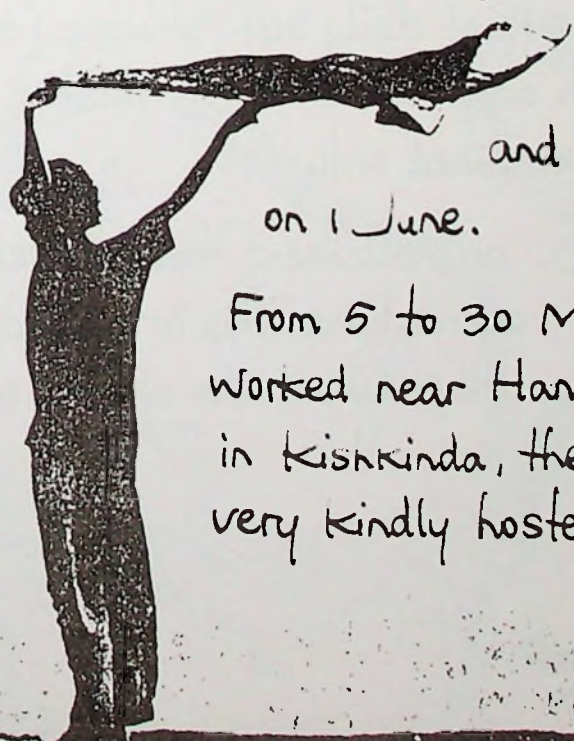 and
on 1 June.
From 5 to 30 M
worked near Han
in Kishkinda, the
very kindly hoste